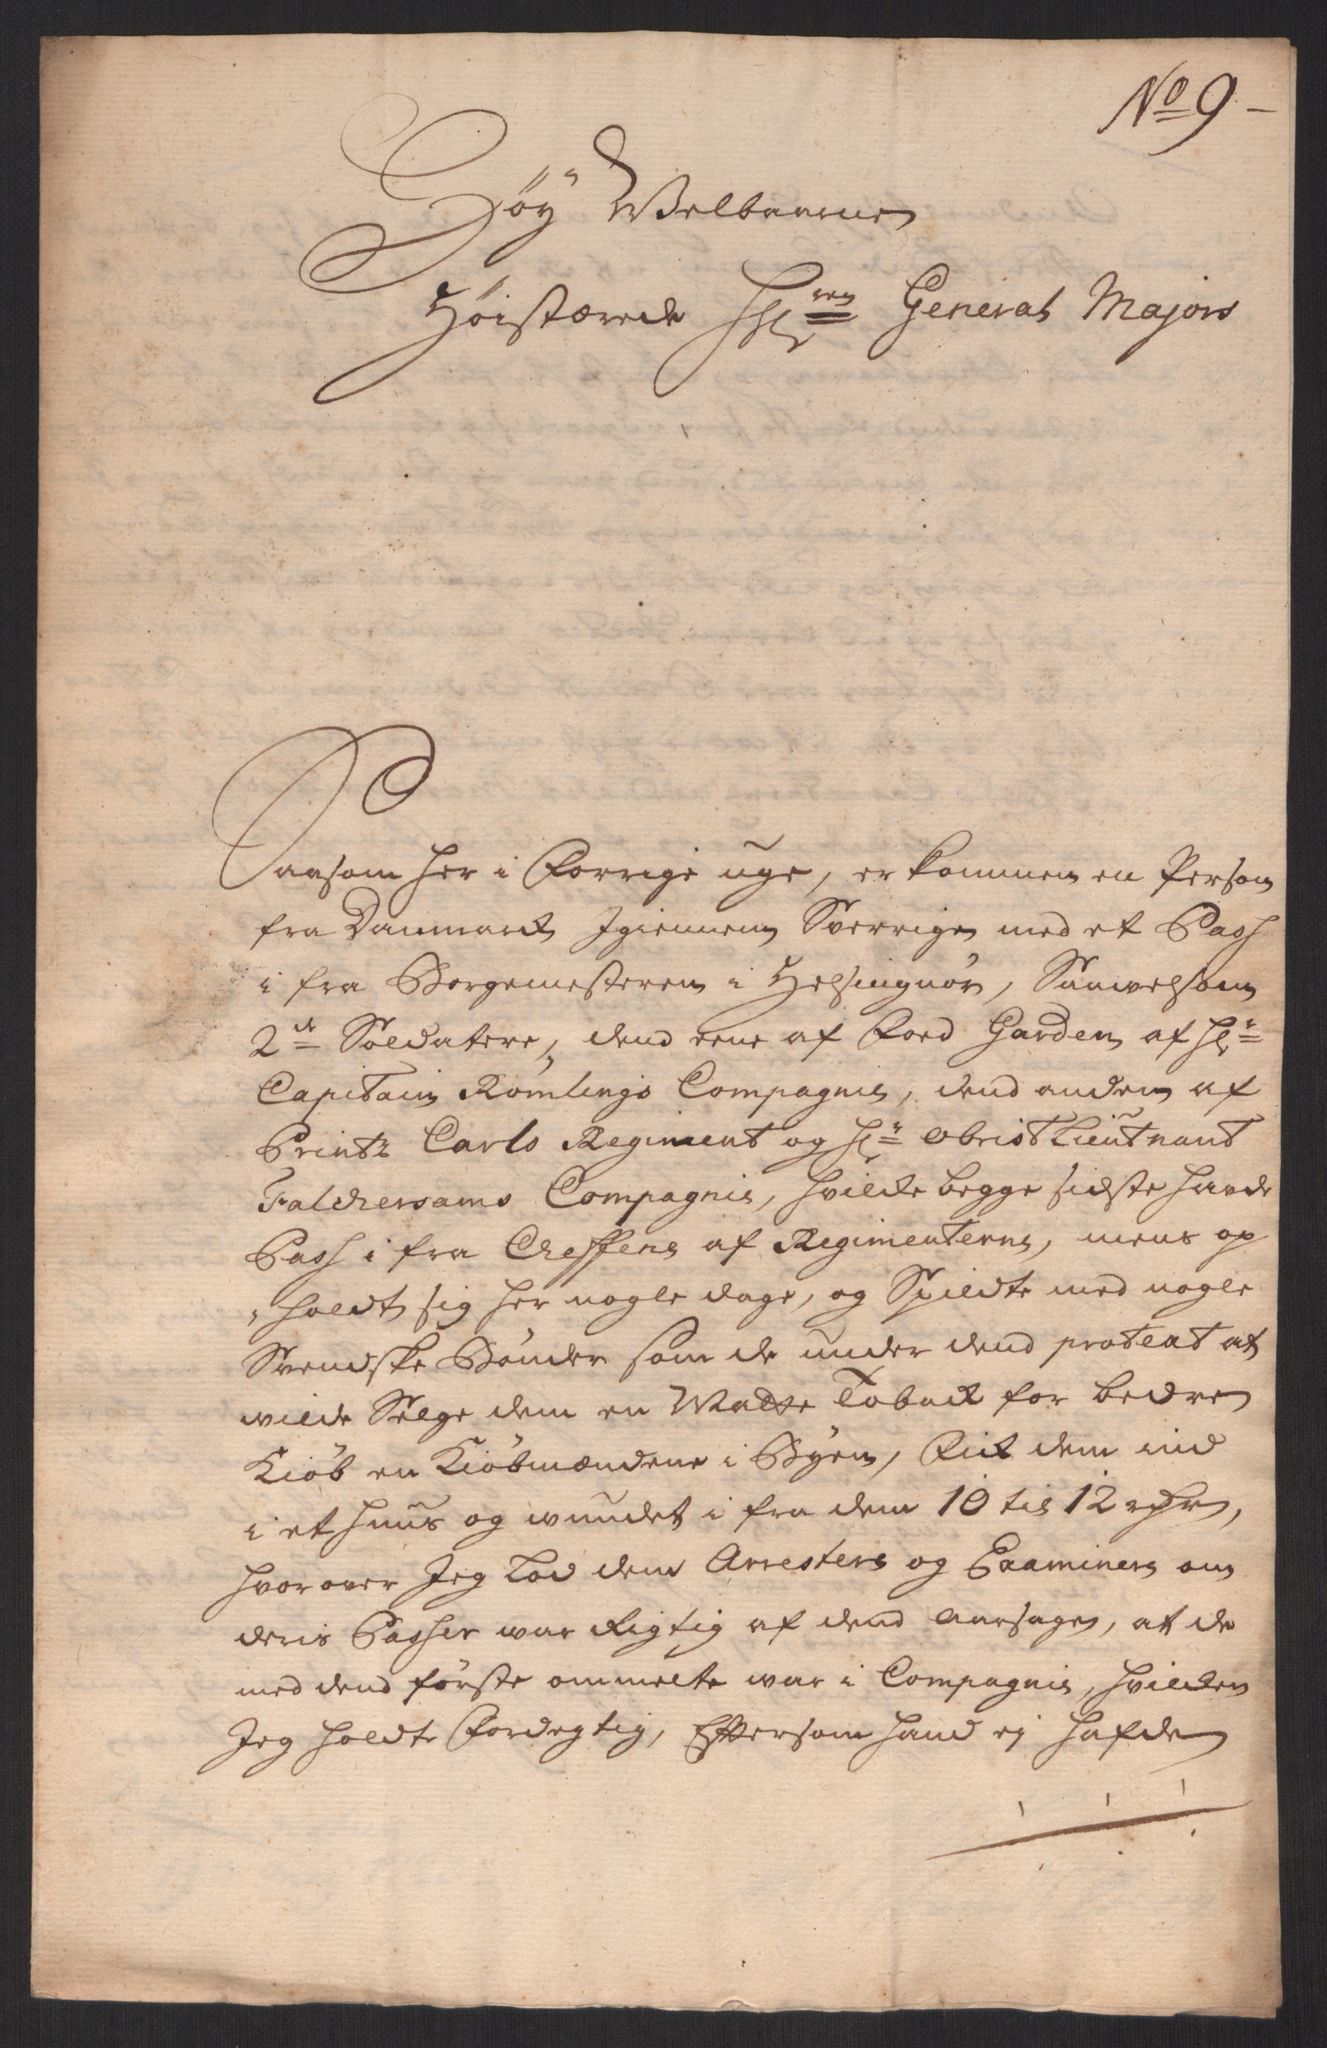 No 9
Høy Welbaarne
Høistærede Hr:ren General Major
Saasom her i Forrige uge, er kommen en Person
fra Danmarck Igiennem Sverrige med et Pass
i fra Borgemesteren i Helsingnör, Saawelsom
2de Soldatere, dend eene af Foed Garden af Hr:
Capitain Römlings Compagnie, dend anden af
Printz Carls Regiment og Hr: Obrist Lieutnant
Falchersams Compagnie, hvilcke begge sidste havde
Pass i fra Cheffene af Regimenterne, mens op
holdt sig her nogle dage, og Spildte med nogle
Svendske Bönder som de under dend protext at
wilde Selge dem en Matte Toback for bedre
Kiöb en Kiöbmændene i Byen, Fick dem ind
i et huus og wundet i fra dem 10 til 12 rdr,
hvorover Jeg Lod dem Arrestere og Examinere om
deris Passer war Rigtig af dend Aarsage, at de
med dend förste ommelte war i Compagnie, hvilcken
Jeg holdt Fordegtig, Eftersom hand ej hafde